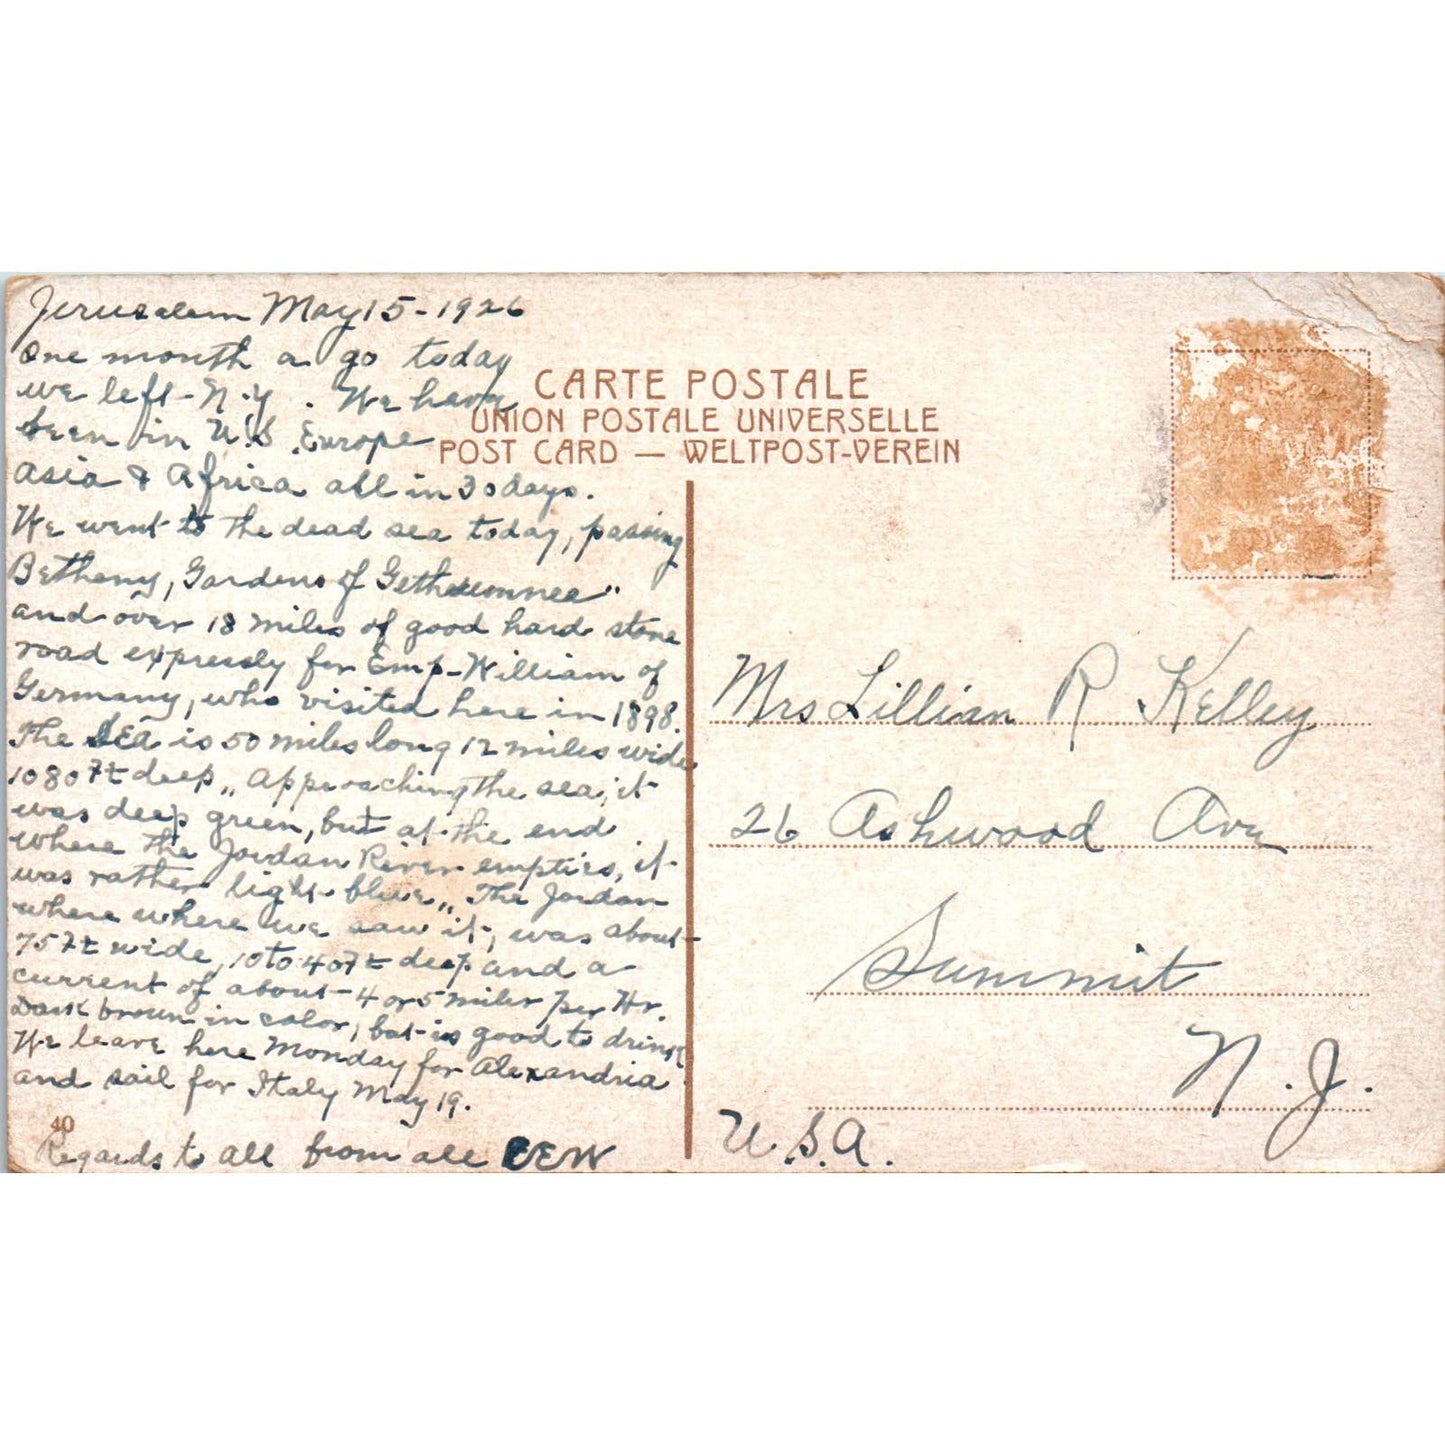 Jerusalem May 15-1926
One month a go today
we left N.Y. We have
been in U.S. Europe
Asia & Africa all in 30 days.
We went to the dead sea today, passing
Bethany, Gardens of Gethsemnee"
and over 18 miles of good hard stone
road expressly for Emp-William of
Germany, who visited here in 1898.
The SEA is 50 miles long 12 miles wide
1080 ft deep,, Approaching the sea, it
was deep green, but at the end
where the Jordan River empties, it
was rather light blue,, The Jordan
where where we saw it, was about
75 ft wide, 10 to 40 ft deep and a
current of about 4 or 5 miles per Hr.
Dark brown in color, but is good to drink
We leave here Monday for Alexandria
and sail for Italy May 19.
40
Regards to all from all EEW
CARTE POSTALE
UNION POSTALE UNIVERSELLE
POST CARD — WELTPOST-VEREIN
Mrs Lillian R Kelley
26 Ashwood Ave
Summit
N.J.
U.S.A.